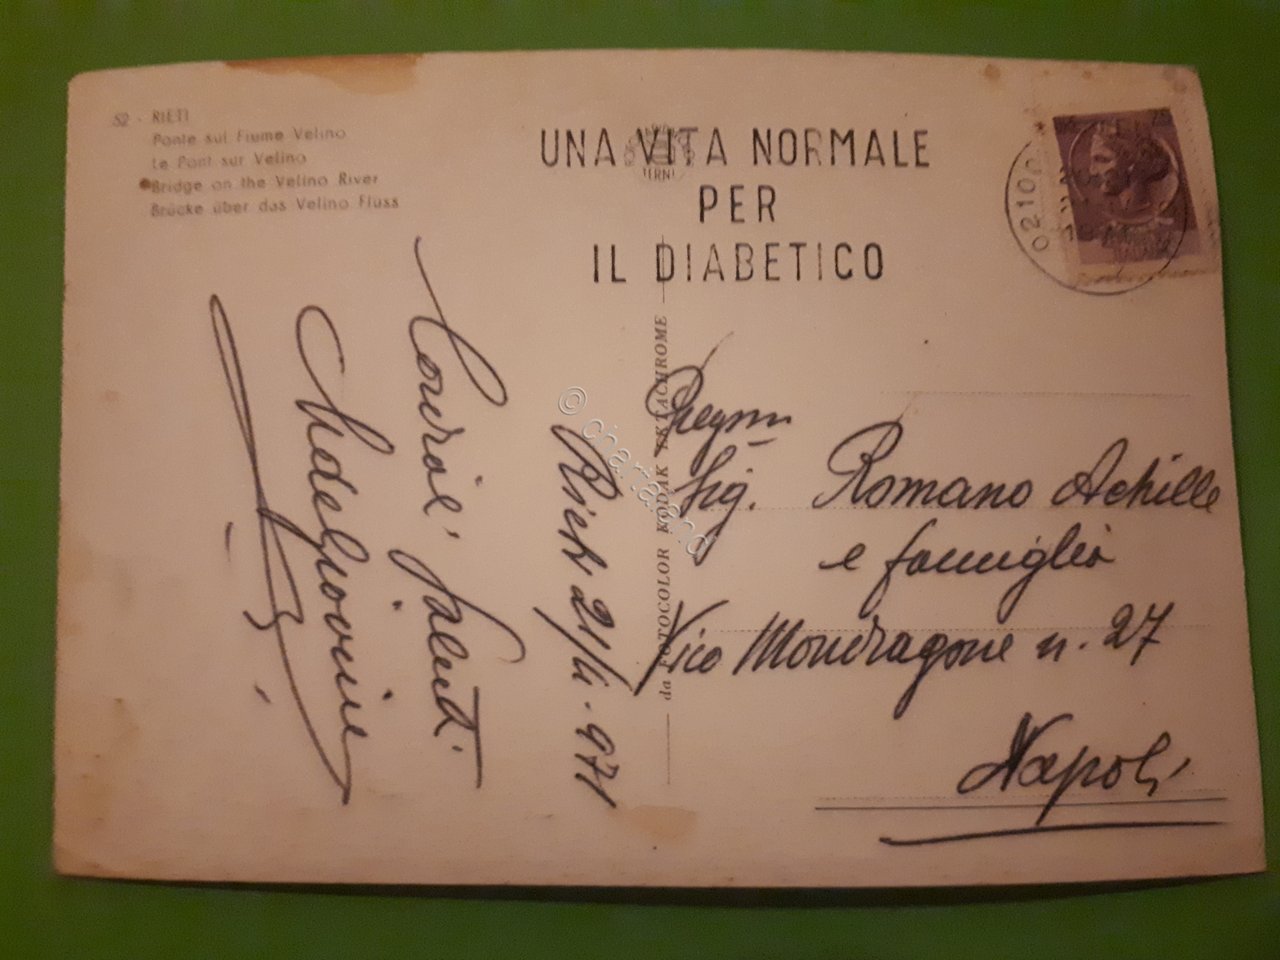 52 - RIETI
Ponte sul Fiume Velino
Le Pont sur Velino
Bridge on the Velino River
Brücke über das Velino Fluss
UNA VITA NORMALE
PER
IL DIABETICO
TERNI
0210
da FOTOCOLOR KODAK EKTACHROME
© charta
Rieti 21/4.971
Cordiali saluti
Pregmo
Sig. Romano Achille
e famiglia
Vico Mondragone n. 27
Napoli